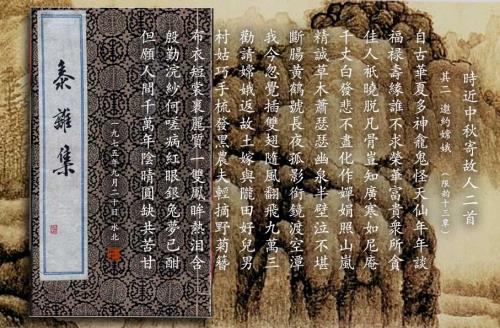 時近中秋寄故人二首
其二 邀約嫦娥 (限韵十三覃)
自古華夏多神龕鬼怪天仙年年談
福祿壽緣誰不求榮華富貴衆所貪
佳人祇曉脫凡骨豈知廣寒如尼庵
千丈白發悲不盡化作嬋娟照山嵐
精誠草木蕭瑟瑟幽泉半壁泣不堪
斷腸黃鶴號長夜孤影銜鏡渡空潭
我今忽覺插雙翅隨風翻飛九萬三
勸請嫦娥返故土嫁與隴田好兒男
村姑巧手梳發黑農夫輕摘野菊簪
布衣短裳裹麗質一雙鳳眸熱淚含
殷勤浣紗何嗟病紅眼銀兔夢已酣
但願人間千萬年陰晴圓缺共苦甘
一九七五年九月二十日 水北
黍離集